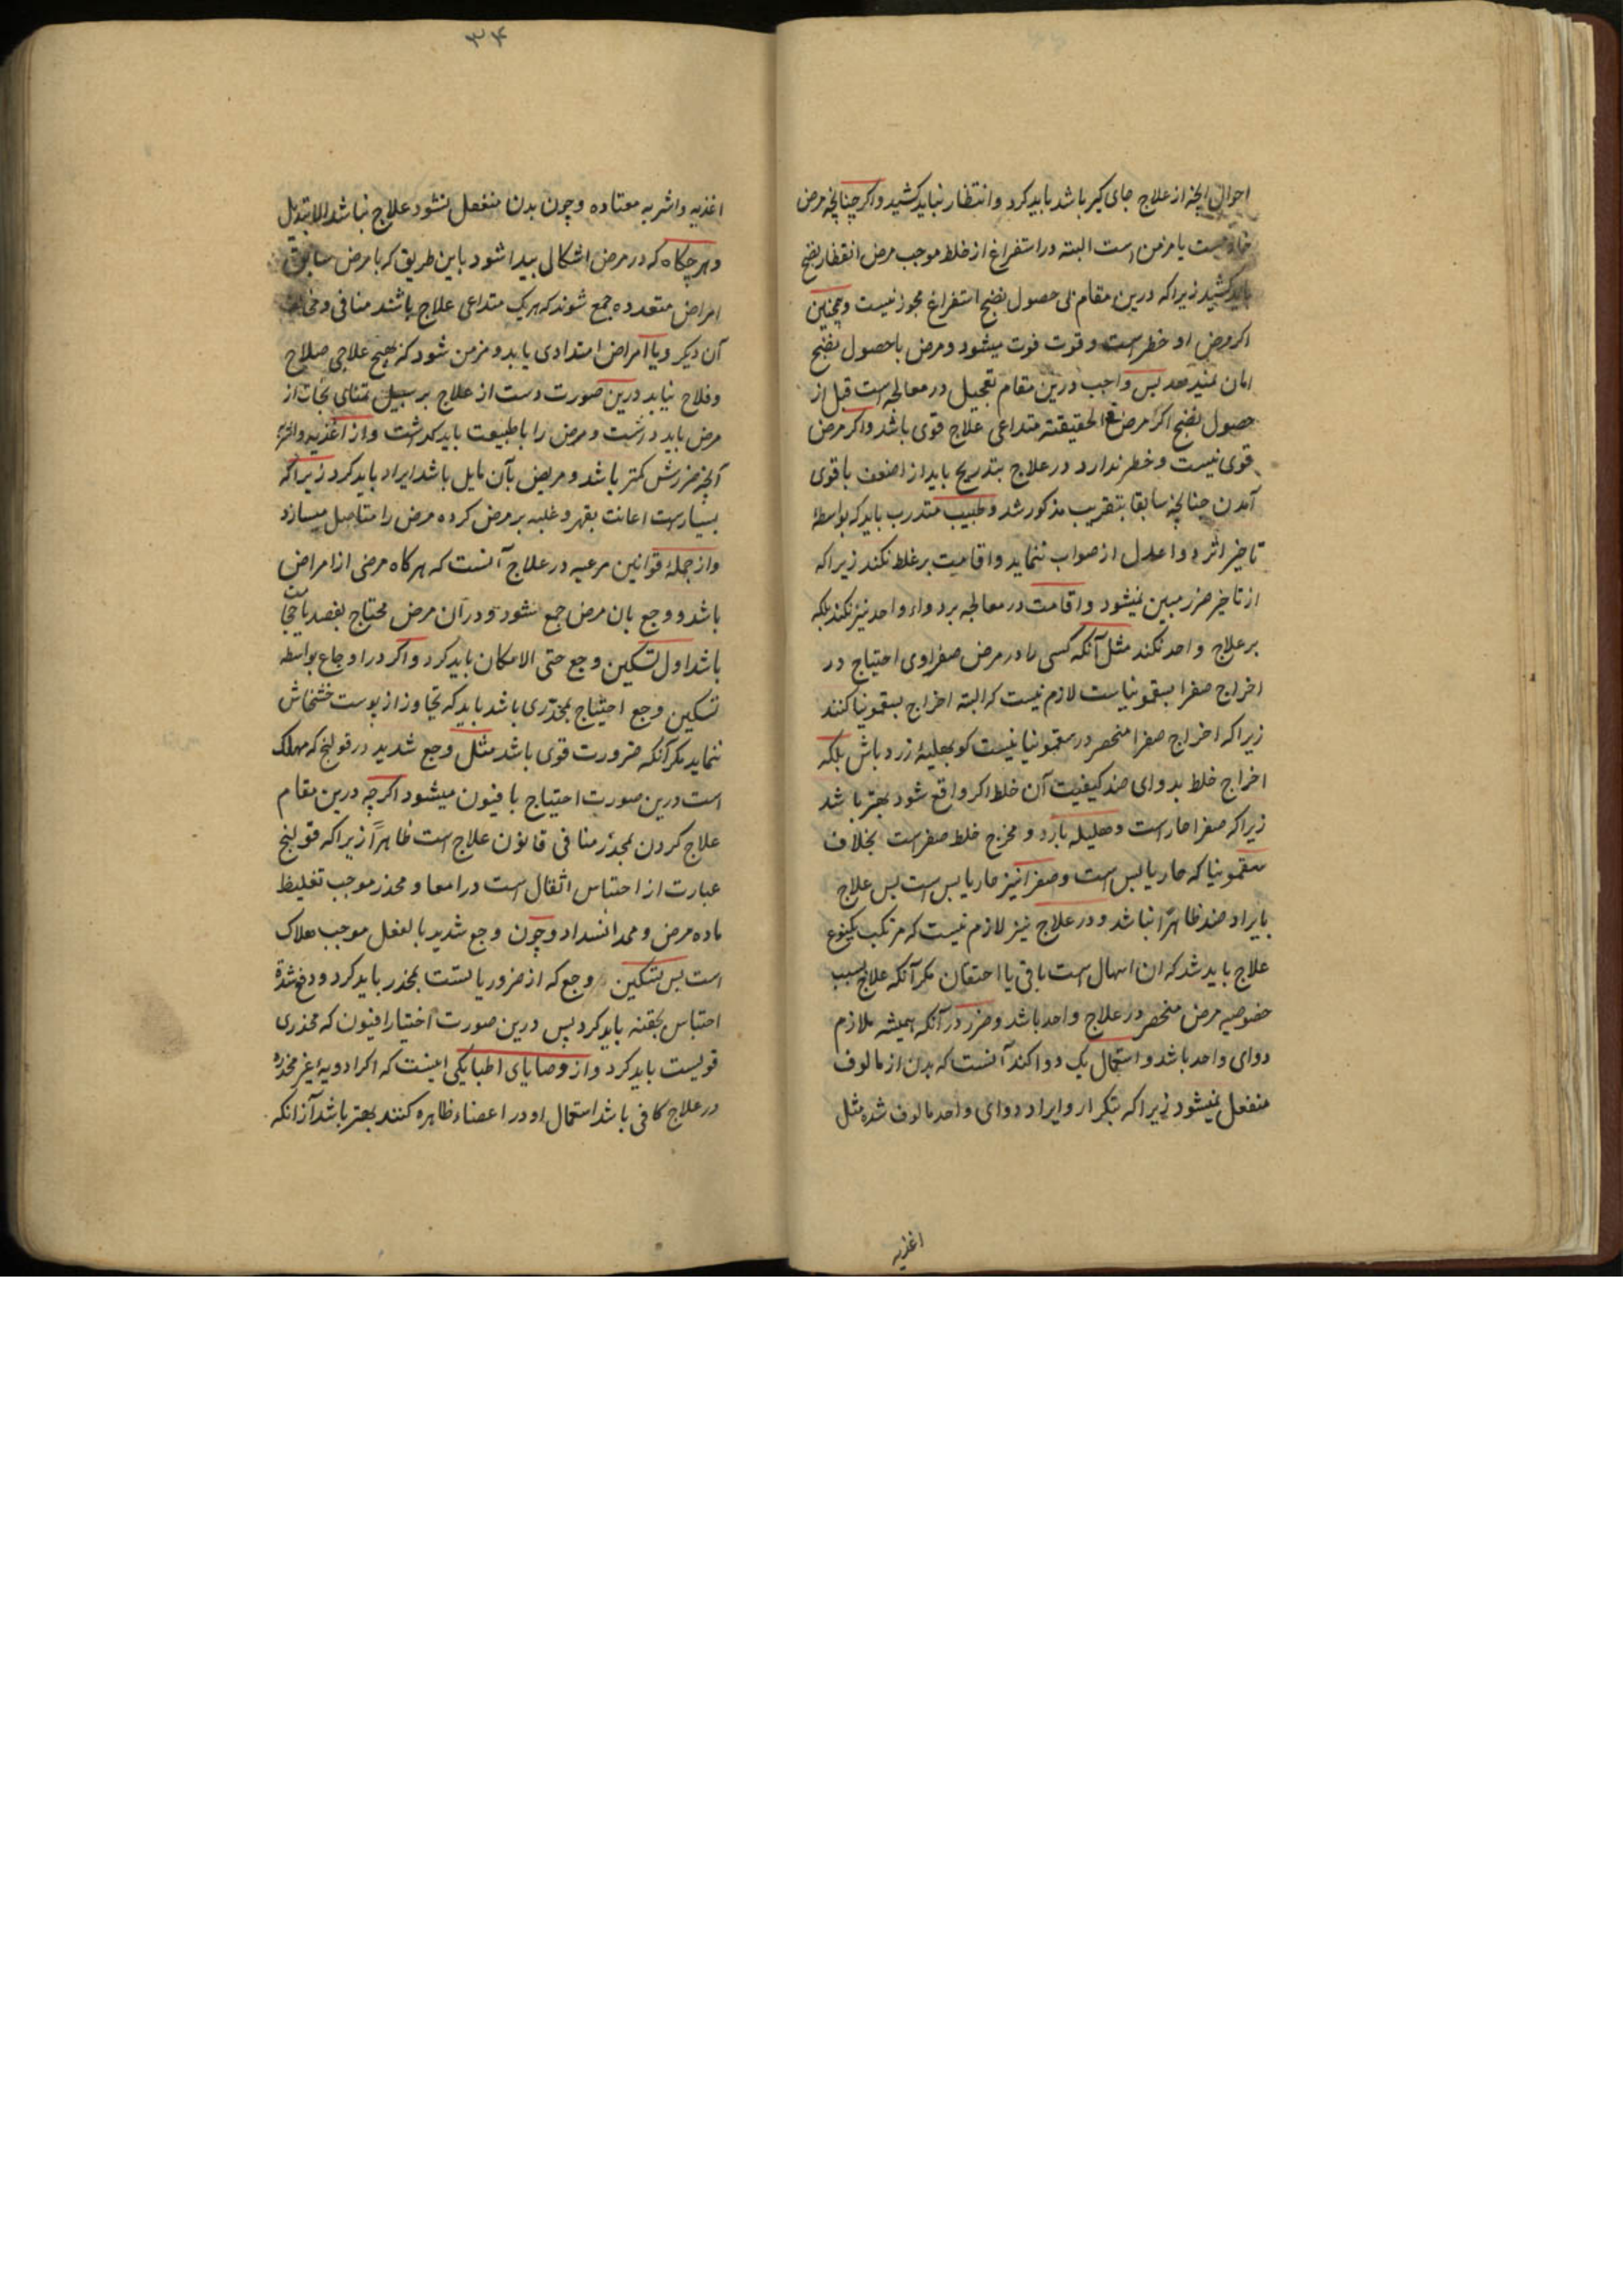 احوال انچه از علاج جای کیر باشد باید کرد و انتظار نباید کشید و اکر چنانچه مرض
یا مزمن است البته در استفراغ از خلط موجب مرض انتظار نضج
باید کشید زیرا که درین مقام بی حصول نضج استفراغ مجوز نیست و همچنین
اکر مرض او خطر است و قوت فوت میشود و مرض با حصول نضج
امان نمیدهد پس واجب درین مقام تعجیل در معالجه است قبل از
حصول نضج اکر مرض فی الحقیقته متداعی علاج قوی باشد و اکر مرض
قوی نیست و خطر ندارد در علاج بتدریج باید از اضعف باقوی
آمدن چنانچه سابقا بتقریب مذکور شد و طبیب متدرب باید که بواسطهٔ
تاخیر اثر دوا عدل از صواب ننماید و اقامیت بر غلط نکند زیرا که
از تاخیر ضرر مبین نمیشود و اقامت در معالجه بر دواء واحد نیز نکند بلکه
بر علاج واحد نکند مثل آنکه کسی را در مرض صفراوی احتیاج در
اخراج صفرا بسقمونیاست لازم نیست که البته اخراج بسقمونیا کنند
زیرا که اخراج صفرا منحصر در سقمونیا نیست کو بهلیلهٔ زرد باش بلکه
اخراج خلط بدوای ضد کیفیت آن خلط اکر واقع شود بهتر باشد
زیرا که صفرا حار است و هلیله بارد و مخرج خلط صفراست بخلاف
سقمونیا که حار یابس است و صفرا نیز حار یابس است پس علاج
بایراد ضد ظاهراً نباشد و در علاج نیز لازم نیست که مرتکب یکنوع
علاج باید شد که ان اسهال است یا قی یا احتقان مکر آنکه علاج بسبب
خصوصیه مرض منحصر در علاج واحد باشد و ضرر در آنکه همیشه ملازم
دوای واحد باشد و استعمال یک دوا کند آنست که بدن از مالوف
منفعل نمیشود زیرا که بتکرار و ایراد دوای واحد مالوف شده مثل
اغذیه
۳۴
اغذیه و اشربه معتاده و چون بدن منفعل نشود علاج نباشد الا بتبدیل
و هرچکاه که در مرض اشکال پیدا شود باین طریق که با مرض سابق
امراض متعدده جمع شوند که هر یک متداعی علاج باشند منافی و مخالف
آن دیکر و یا امراض امتدادی یابد و مزمن شود که بهیچ علاجی صلاح
و فلاح نیابد درین صورت دست از علاج بر سبیل تمنای نجات از
مرض باید داشت و مرض را با طبیعت باید کذاشت و از اغذیه و اشربه
آنچه ضررش کمتر باشد و مریض بآن مایل باشد ایراد باید کرد زیرا که
بسیارست اعانت بقهر و غلبه بر مرض کرده مرض را مستاصل میسازد
و از جملهٔ قوانین مرعیه در علاج آنست که هرکاه مرضی از امراض
باشد و وجع بان مرض جمع شود و در آن مرض محتاج بفصد یا حجامت
باشد اول تسکین وجع حتی الامکان باید کرد و اکر در اوجاع بواسطه
تسکین وجع احتیاج بمخدری باشد باید که تجاوز از پوست خشخاش
ننماید مکر آنکه ضرورت قوی باشد مثل وجع شدید در قولنج که مهلک
است درین صورت احتیاج بافیون میشود اکرچه درین مقام
علاج کردن بمخدر منافی قانون علاج است ظاهراً زیرا که قولنج
عبارت از احتباس اثفال است در امعا و مخدر موجب تغلیظ
ماده مرض و ممد انسداد و چون وجع شدید بالفعل موجب هلاک
است پس تسکین وجع که از ضروریاتست بمخدر باید کرد و دفع شدة
احتباس بحقنه باید کرد پس درین صورت اختیار افیون که مخدری
قویست باید کرد و از وصایای اطبا یکی اینست که اکر ادویهٔ غیر مخدره
در علاج کافی باشد استعمال او در اعضاء ظاهره کنند بهتر باشد از آنکه